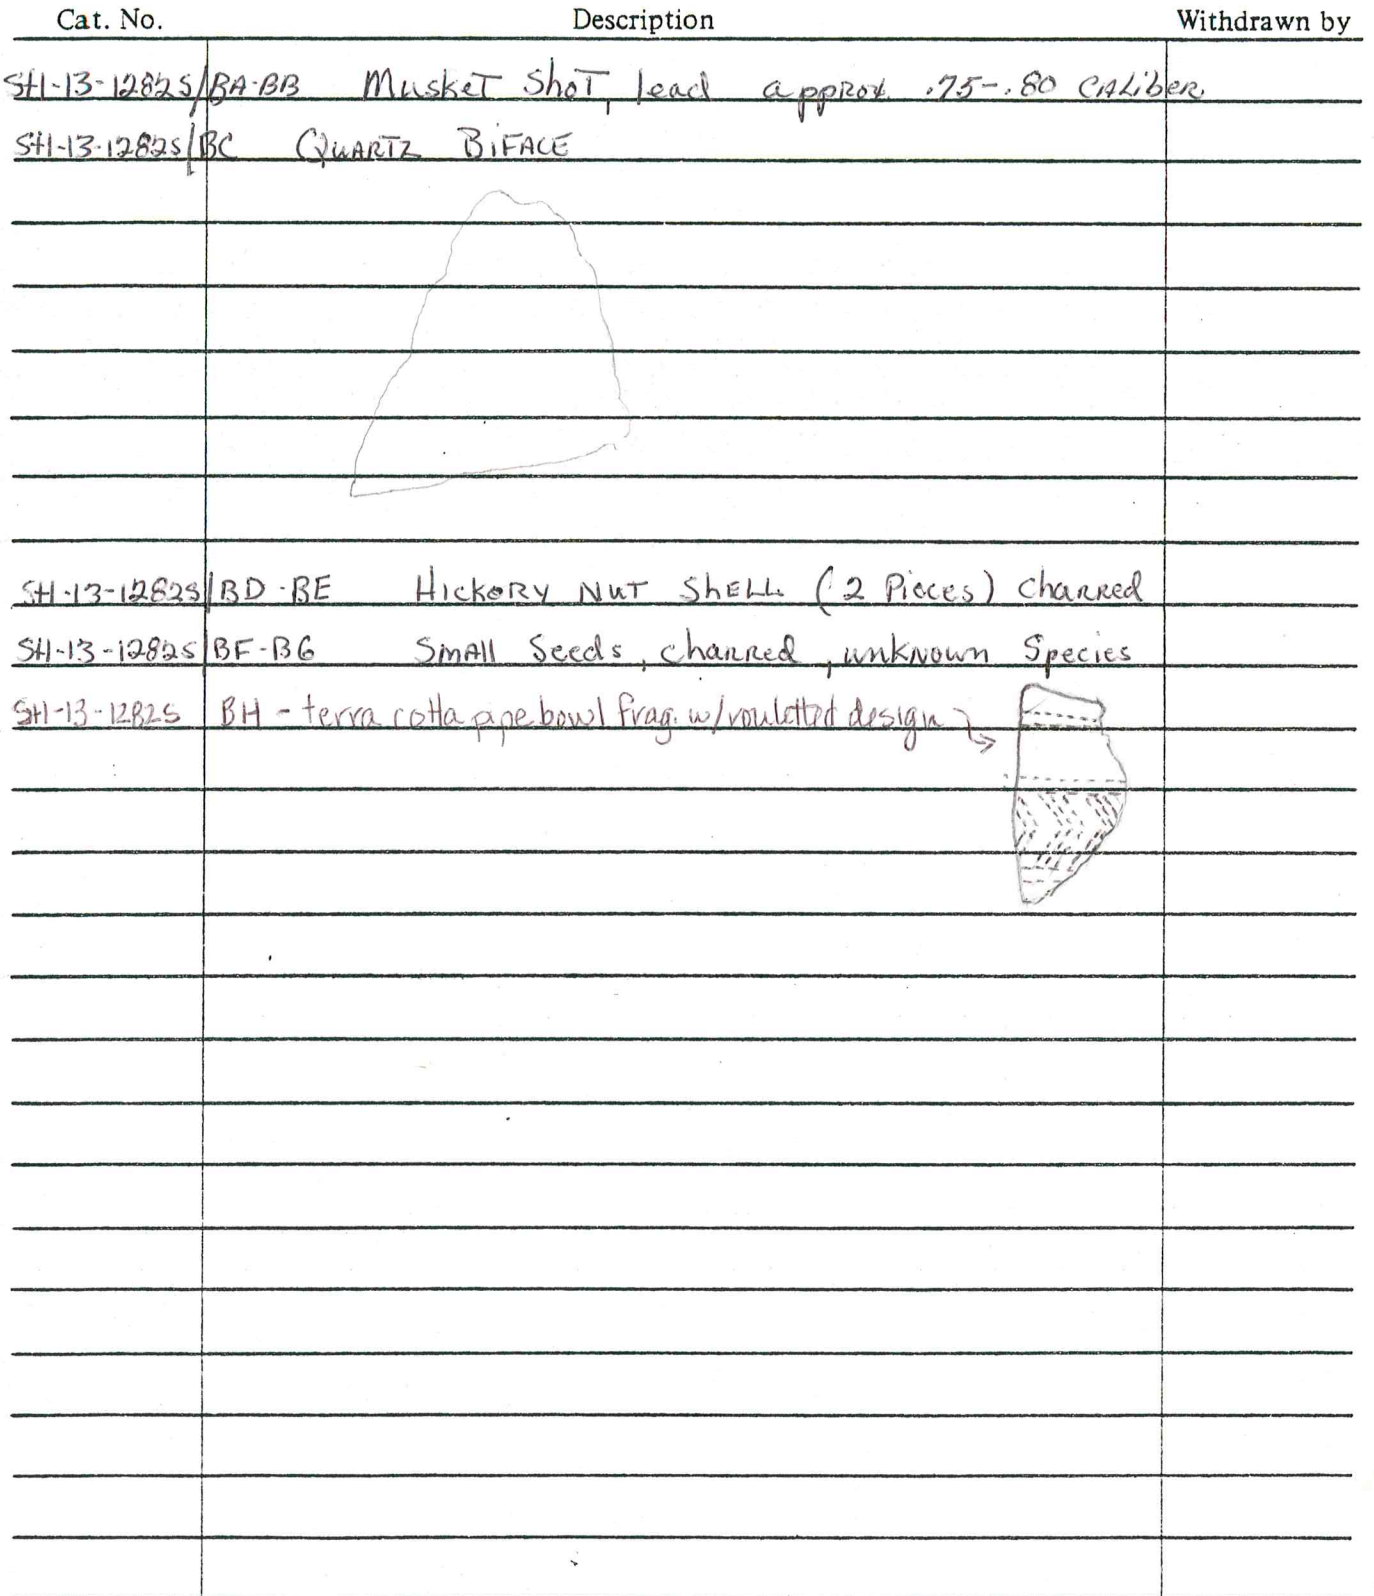 Cat. No. Description Withdrawn by
SH-13-1282S/BA-BB Musket Shot, lead approx. .75-.80 CALiber
SH-13-1282S/BC QUARTZ BiFACE
SH-13-1282S/BD-BE HickoRy Nut ShELL (2 Pieces) chaRRed
SH-13-1282S BF-BG SmAll Seeds, chaRRed, unkNowN Species
SH-13-1282S BH - terra cotta pipe bowl frag. w/rouletted design